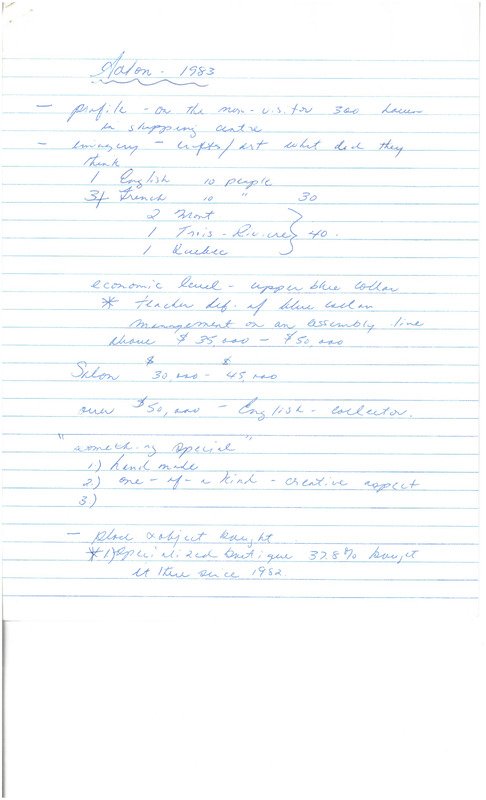 Salon - 1983
- profile - on the non-vis. for 300
in shopping centre
- imagery - crafts/art what did they
think
1 English 10 people
3 French 10 " 30
2 Mont
1 Trois-Riviere } 40.
1 Quebec
economic level - upper blue collar
* teacher def. of blue collar
management on an assembly line
above $35,000 - $50,000
Salon $30,000 - $45,000
over $50,000 - English - collector.
"something special"
1.) hand made
2.) one-of-a kind - creative aspect
3.)
- place object bought
* 1) Specialized boutique 37.8% bought
it there since 1982.